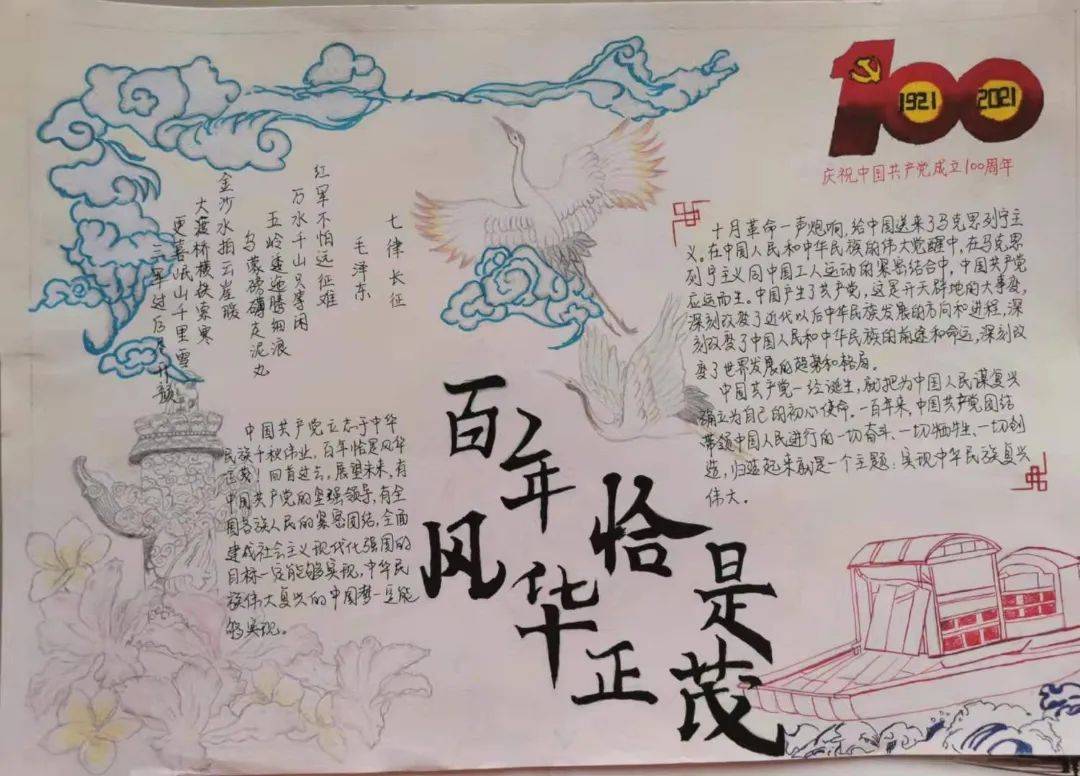 100
1921 2021
庆祝中国共产党成立100周年
七律长征
毛泽东
红军不怕远征难
万水千山只等闲
五岭逶迤腾细浪
乌蒙磅礴走泥丸
金沙水拍云崖暖
大渡桥横铁索寒
更喜岷山千里雪
三军过后尽开颜
十月革命一声炮响,给中国送来了马克思列宁主
义。在中国人民和中华民族的伟大觉醒中,在马克思
列宁主义同中国工人运动的紧密结合中,中国共产党
应运而生。中国产生了共产党,这是开天辟地的大事变,
深刻改变了近代以后中华民族发展的方向和进程,深
刻改变了中国人民和中华民族的前途和命运,深刻改
变了世界发展的趋势和格局。
中国共产党一经诞生,就把为中国人民谋复兴
确立为自己的初心使命。一百年来,中国共产党团结
带领中国人民进行的一切奋斗、一切牺牲、一切创
造,归结起来就是一个主题:实现中华民族复兴
伟大。
中国共产党立志于中华
民族千秋伟业,百年恰是风华
正茂!回首过去,展望未来,有
中国共产党的坚强领导,有全
国各族人民的紧密团结,全面
建成社会主义现代化强国的
目标一定能够实现,中华民
族伟大复兴的中国梦一定能
够实现。
百年
恰是
风华
正茂